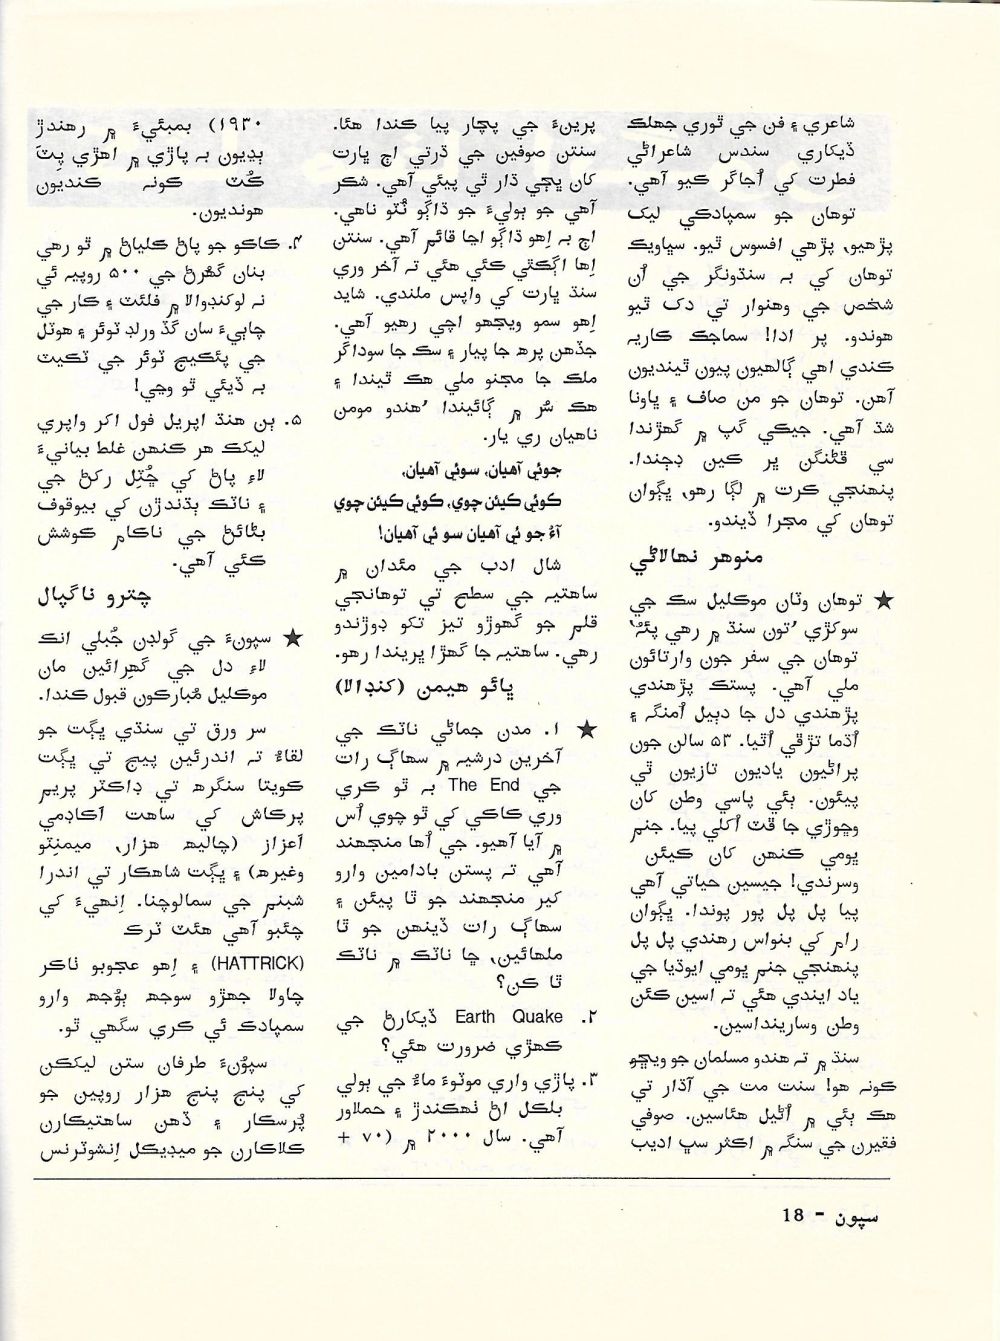 شاعري ۽ فن جي ٿوري جھلڪ
ڏيکاري سندس شاعراڻي
فطرت کي اُجاگر ڪيو آهي.
توهان جو سمپادڪي ليک
پڙهيو، پڙهي افسوس ٿيو. سڀاويڪ
توهان کي بہ سنڌونگر جي اُن
شخص جي وهنوار تي دک ٿيو
هوندو. پر ادا! سماجڪ ڪاريہ
ڪندي اهي ڳالهيون پيون ٿينديون
آهن. توهان جو من صاف ۽ ڀاونا
شڌ آهي. جيڪي گپ ۾ گهڙندا
سي ڦٽنگن ڀر ڪين ڊڄندا.
پنهنجي ڪرت ۾ لڳا رهو، ڀڳوان
توهان کي مڃرا ڏيندو.
منوهر نهالاڻي
★ توهان وٽان موڪليل سڪ جي
سوکڙي ’تون سنڌ ۾ رهي پئہُ‘
توهان جي سفر جون وارتائون
ملي آهي. پستڪ پڙهندي
پڙهندي دل جا دٻيل اُمنگہ ۽
اُڌما تڙڦي اُٿيا. ۵۳ سالن جون
پراڻيون ياديون تازيون ٿي
پيئون. ٻئي پاسي وطن کان
وڇوڙي جا ڦٽ اُکلي پيا. جنم
ڀومي ڪنهن کان ڪيئن
وسرندي! جيسين حياتي آهي
پيا پل پل پور پوندا. ڀڳوان
رام کي بنواس رهندي پل پل
پنهنجي جنم ڀومي ايوڌيا جي
ياد ايندي هئي تہ اسين ڪئن
وطن وسارينداسين.
سنڌ ۾ تہ هندو مسلمان جو ويڇو
ڪونہ هو! سنت مت جي آڌار تي
هڪ ٻئي ۾ اُڻيل هئاسين. صوفي
فقيرن جي سنگہ ۾ اڪثر سڀ اديب
پرينءَ جي پچار پيا ڪندا هئا.
سنتن صوفين جي ڌرتي اڄ ڀارت
کان ڀڄي ڌار ٿي پيئي آهي. شڪر
آهي جو ٻوليءَ جو ڌاڳو ٽُٽو ناهي.
اڄ بہ اِهو ڌاڳو اڃا قائم آهي. سنتن
اِها اڳڪٿي ڪئي هئي تہ آخر وري
سنڌ ڀارت کي واپس ملندي. شايد
اِهو سمو ويجهو اچي رهيو آهي.
جڏهن پرھ جا پيار ۽ سڪ جا سوداگر
ملڪ جا مڃتو ملي هڪ ٿيندا ۽
هڪ سُر ۾ ڳائيندا ’هندو مومن
ناهيان ري يار.
جوئي آهيان، سوئي آهيان،
ڪوئي ڪيئن چوي، ڪوئي ڪيئن چوي
آءُ جو ئي آهيان سو ئي آهيان!
شال ادب جي مئدان ۾
ساهتيہ جي سطح تي توهانجي
قلم جو گهوڙو تيز تکو ڊوڙندو
رهي. ساهتيہ جا گهڙا ڀريندا رهو.
ڀائو هيمن (کنڊالا)
★ ۱. مدن جماڻي ناٽڪ جي
آخرين درشيہ ۾ سهاڳ رات
جي The End بہ ٿو ڪري
وري ڪاڪي کي ٿو چوي اُس
۾ آيا آهيو. جي اُها منجهند
آهي تہ پستن بادامين وارو
کير منجهند جو ٿا پيئن ۽
سهاڳ رات ڏينهن جو ٿا
ملهائين، ڇا ناٽڪ ۾ ناٽڪ
ٿا ڪن؟
۲. Earth Quake ڏيکارڻ جي
ڪهڙي ضرورت هئي؟
۳. پاڙي واري موٽوءَ ماءُ جي ٻولي
بلڪل اڻ ٺهڪندڙ ۽ حملاور
آهي. سال ۲۰۰۰ ۾ (۷۰ +
۱۹۳۰) بمبئيءَ ۾ رهندڙ
ٻڍيون بہ پاڙي ۾ اهڙي پِٽ
ڪُٽ ڪونہ ڪنديون
هونديون.
۴. ڪاڪو جو پاڻ ڪلياڻ ۾ ٿو رهي
بنان گهُرڻ جي ۵۰۰ روپيہ ئي
نہ لوکنڊوالا ۾ فلئٽ ۽ ڪار جي
چاٻيءَ سان گڏ ورلڊ ٽوئر ۽ هوٽل
جي پئڪيج ٽوئر جي ٽڪيٽ
بہ ڏيئي ٿو وڃي!
۵. ٻن هنڌ اپريل فول اکر واپري
ليکڪ هر ڪنهن غلط بيانيءَ
لاءِ پاڻ کي ڇُٽل رکڻ جي
۽ ناٽڪ ٻڌندڙن کي بيوقوف
بڻائڻ جي ناڪام ڪوشش
ڪئي آهي.
چترو ناگپال
★ سپونءَ جي گولڊن جُبلي انڪ
لاءِ دل جي گهراِئين مان
موڪليل مُبارکون قبول ڪندا.
سر ورق تي سنڌي ڀڳت جو
لقاءُ تہ اندرئين پيج تي ڀڳت
ڪويتا سنگرھ تي ڊاڪٽر پريم
پرڪاش کي ساهت اڪادمي
اعزاز (چاليھ هزار، ميمنٽو
وغيرھ) ۽ ڀڳت شاهڪار تي اندرا
شبنم جي سمالوچنا. اِنهيءَ کي
چئبو آهي هئٽ ٽرڪ
(HATTRICK) ۽ اِهو عجوبو ٺاڪر
چاولا جهڙو سوجھ ٻوُجھ وارو
سمپادڪ ئي ڪري سگهي ٿو.
سپوُنءَ طرفان ستن ليکڪن
کي پنج پنج هزار روپين جو
پُرسڪار ۽ ڏهن ساهتيڪارن
ڪلاڪارن جو ميڊيڪل اِنشوئرنس
سپون - 18